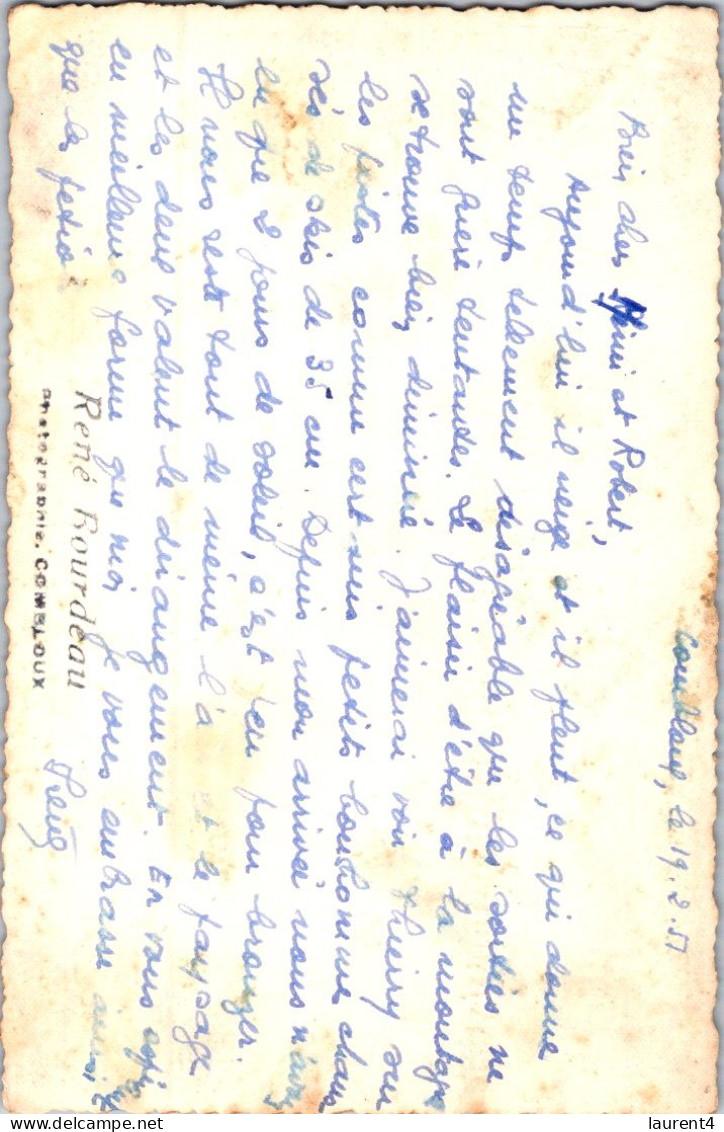 Combloux, le 19.2.51
Bien chers Mimi et Robert,
Aujourd'hui il neige et il pleut, ce qui donne
un temps tellement désagréable que les sorties ne
sont guère tentantes. Le plaisir d'être à la montagne
se trouve bien diminué. J'aimerai voir Thierry sur
les pistes comme certains petits bonhommes chaus
sés de skis de 35 cm. Depuis mon arrivée nous n'avons
eu que 2 jours de soleil, c'est peu pour bronzer.
Il nous reste tout de même l'a et le paysage
et les deux valent le dérangement. En vous
en meilleure forme que moi je vous embrasse ainsi
que les
René Bourdeau
Photographie. COMBLOUX
laurent4